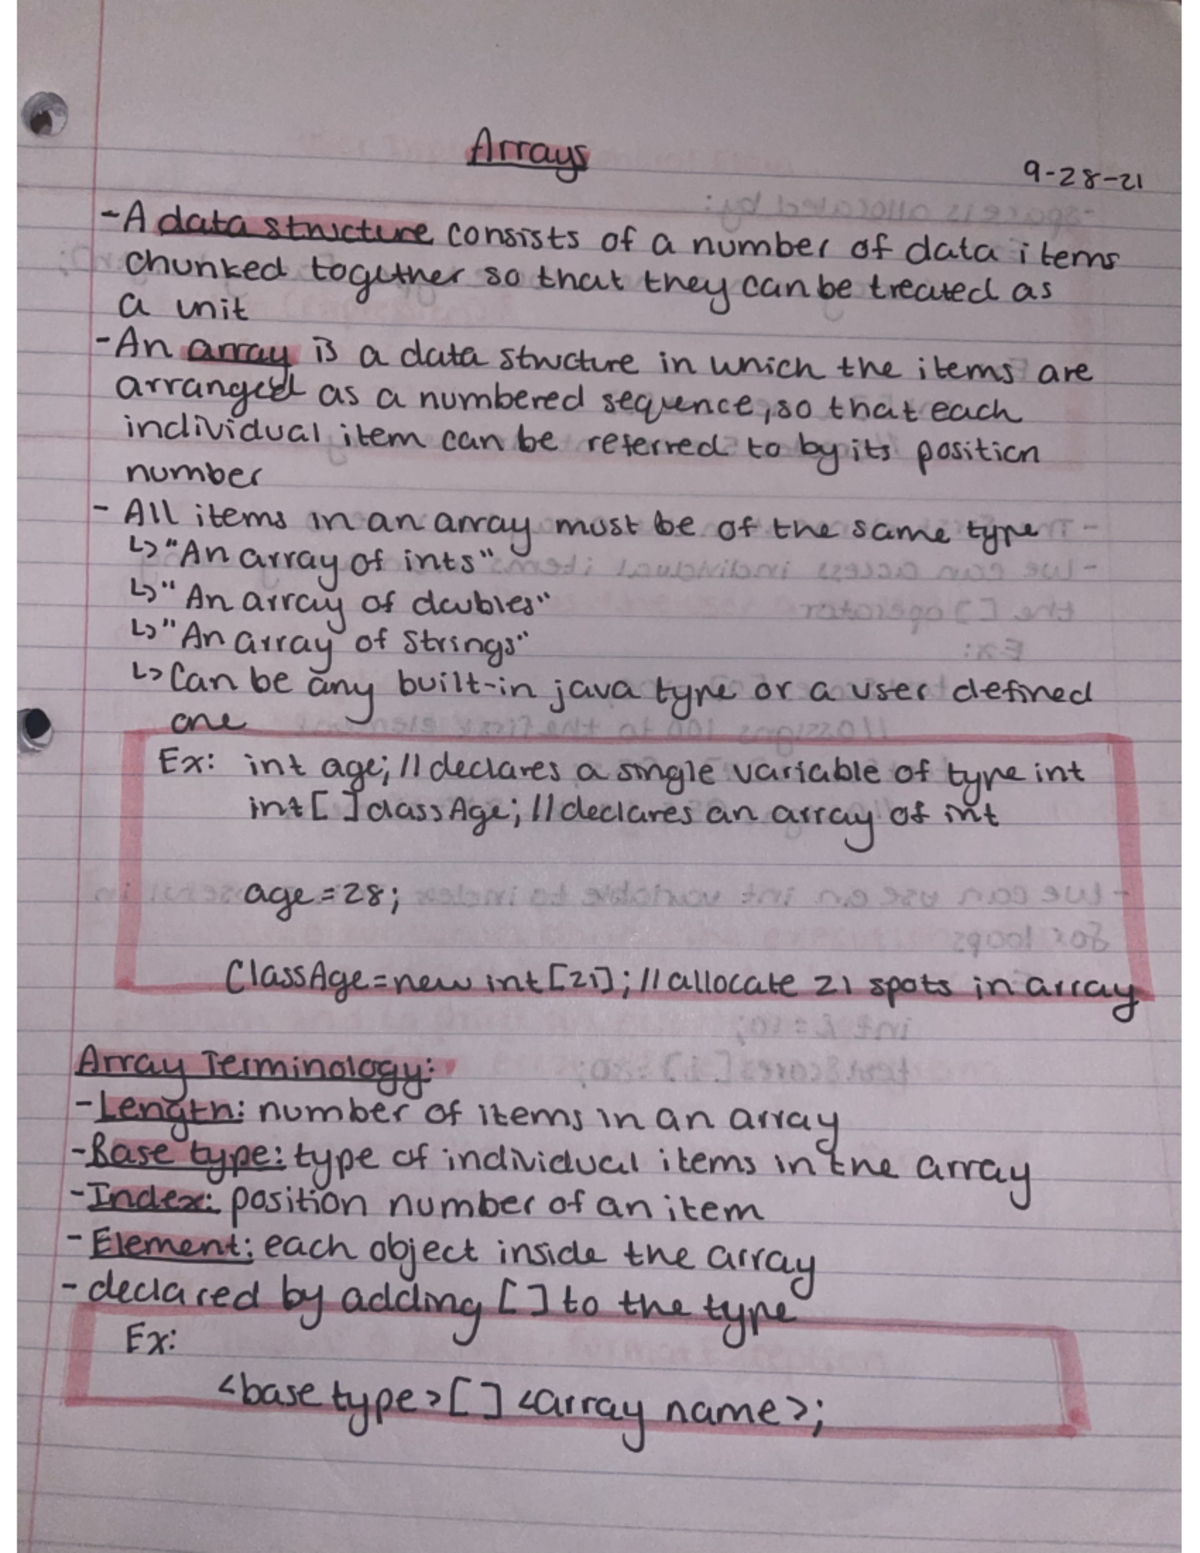 Arrays
9-28-21
- A data structure consists of a number of data items
chunked together so that they can be treated as
a unit
- An array is a data structure in which the items are
arranged as a numbered sequence, so that each
individual item can be referred to by its position
number
- All items in an array must be of the same type
↳ "An array of ints"
↳ "An array of doubles"
↳ "An array of Strings"
↳ Can be any built-in java type or a user defined
one
Ex: int age; // declares a single variable of type int
int[ ] classAge; // declares an array of int
age = 28;
ClassAge = new int [21]; // allocate 21 spots in array
Array Terminology:
- Length: number of items in an array
- Base type: type of individual items in the array
- Index: position number of an item
- Element: each object inside the array
- declared by adding [ ] to the type
Ex:
<base type>[ ] <array name>;